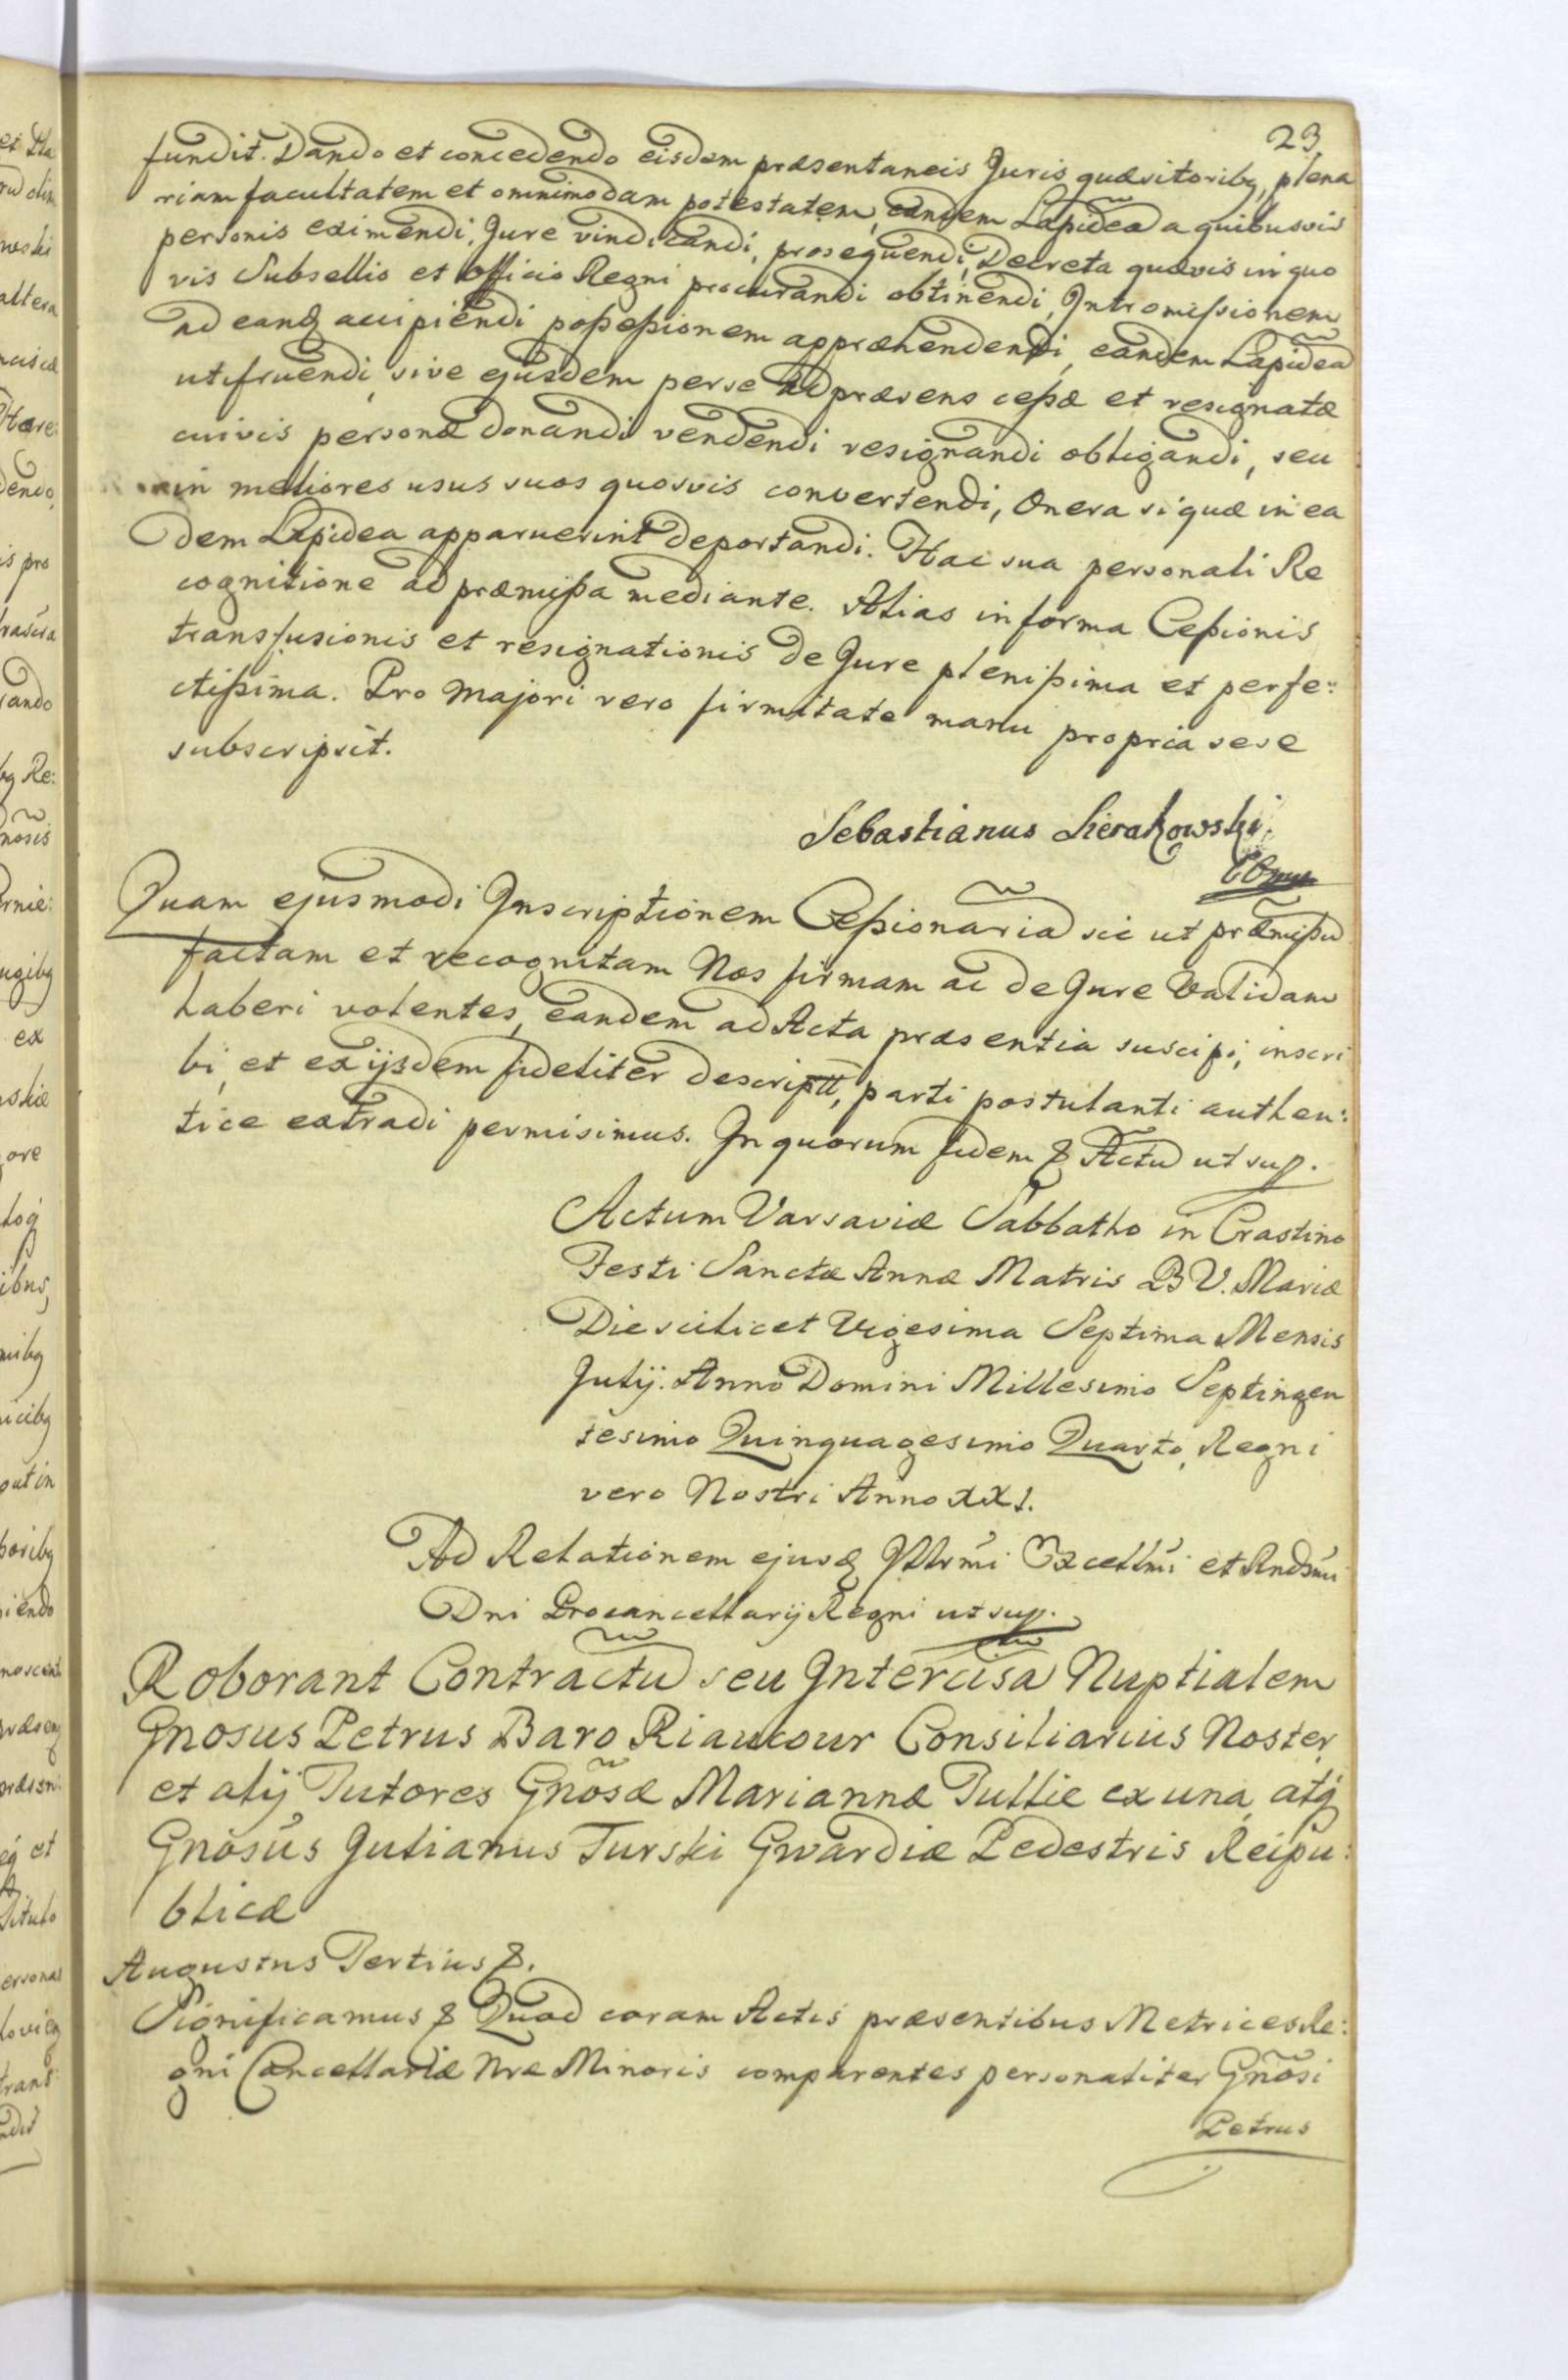 23
fundit. Dando et concedendo eisdem præsentaneis Juris quæsitoribq, plena
riam facultatem et omnimodam potestatem, eandem Lapidea͠ a quibusvis
personis eximendi, Jure vindicandi, prosequendi, Decreta quævis in quo
vis Subsellio et officio Regni procurandi obtinendi, Intromissionem
ad eandq accipiendi possessionem appræhendendi, eandem Lapidea͠
utifruendi, sive ejusdem perse ad præsens cessæ et resignatæ
cuivis personæ donandi vendendi resignandi obligandi, seu
in meliores usus suos quosvis convertendi, Onera si quæ in ea
dem Lapidea apparuerint deportandi. Hac sua personali Re
cognitione ad præmissa mediante. Alias in forma Cessionis
transfusionis et resignationis de Jure plenissima et perfe:
ctissima. Pro majori vero firmitate manu propria sese
subscripsit.
Sebastianus Sierakowski
Quam ejusmodi Inscriptionem Cessionaria͠ sic ut præmissu͠
factam et recognitam Nos firmam ac de Jure Validam
haberi volentes, eandem ad Acta præsentia suscipi, inscri
bi, et ex ijsdem fideliter descriptt, parti postulanti authen:
tice extradi permisimus. In quorum fidem & Actu͠ ut sup.
Actum Varsaviæ Sabbatho in Crastino
Festi Sanctæ Annæ Matris B V. Mariæ
Die scilicet Vigesima Septima Mensis
Julij. Anno Domini Millesimo Septingen
tesimo Quinquagesimo Quarto, Regni
vero Nostri Anno XXI.
Ad Relationem ejusq Illrmi Excellmi et Rndsmi
Dni Procancellarij Regni ut sup.
Roborant Contractu͠ seu Intercisa͠ Nuptialem
Gnosus Petrus Baro Riaucour Consiliarius Noster
et alij Tutores Gno͠sæ Mariannæ Tullie ex una, atq
Gnosus Julianus Turski Gwardiæ Pedestris Reipu:
blicæ
Augustus Tertius &.
Significamus & Quod coram Actis præsentibus Metrices Re:
gni Cancellariæ Nræ Minoris comparentes personaliter Gno͠si
Petrus